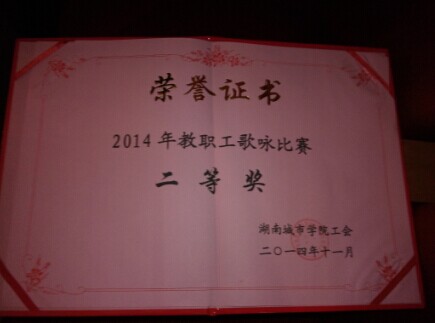 荣誉证书
2014年教职工歌咏比赛
二等奖
湖南城市学院工会
二〇一四年十一月